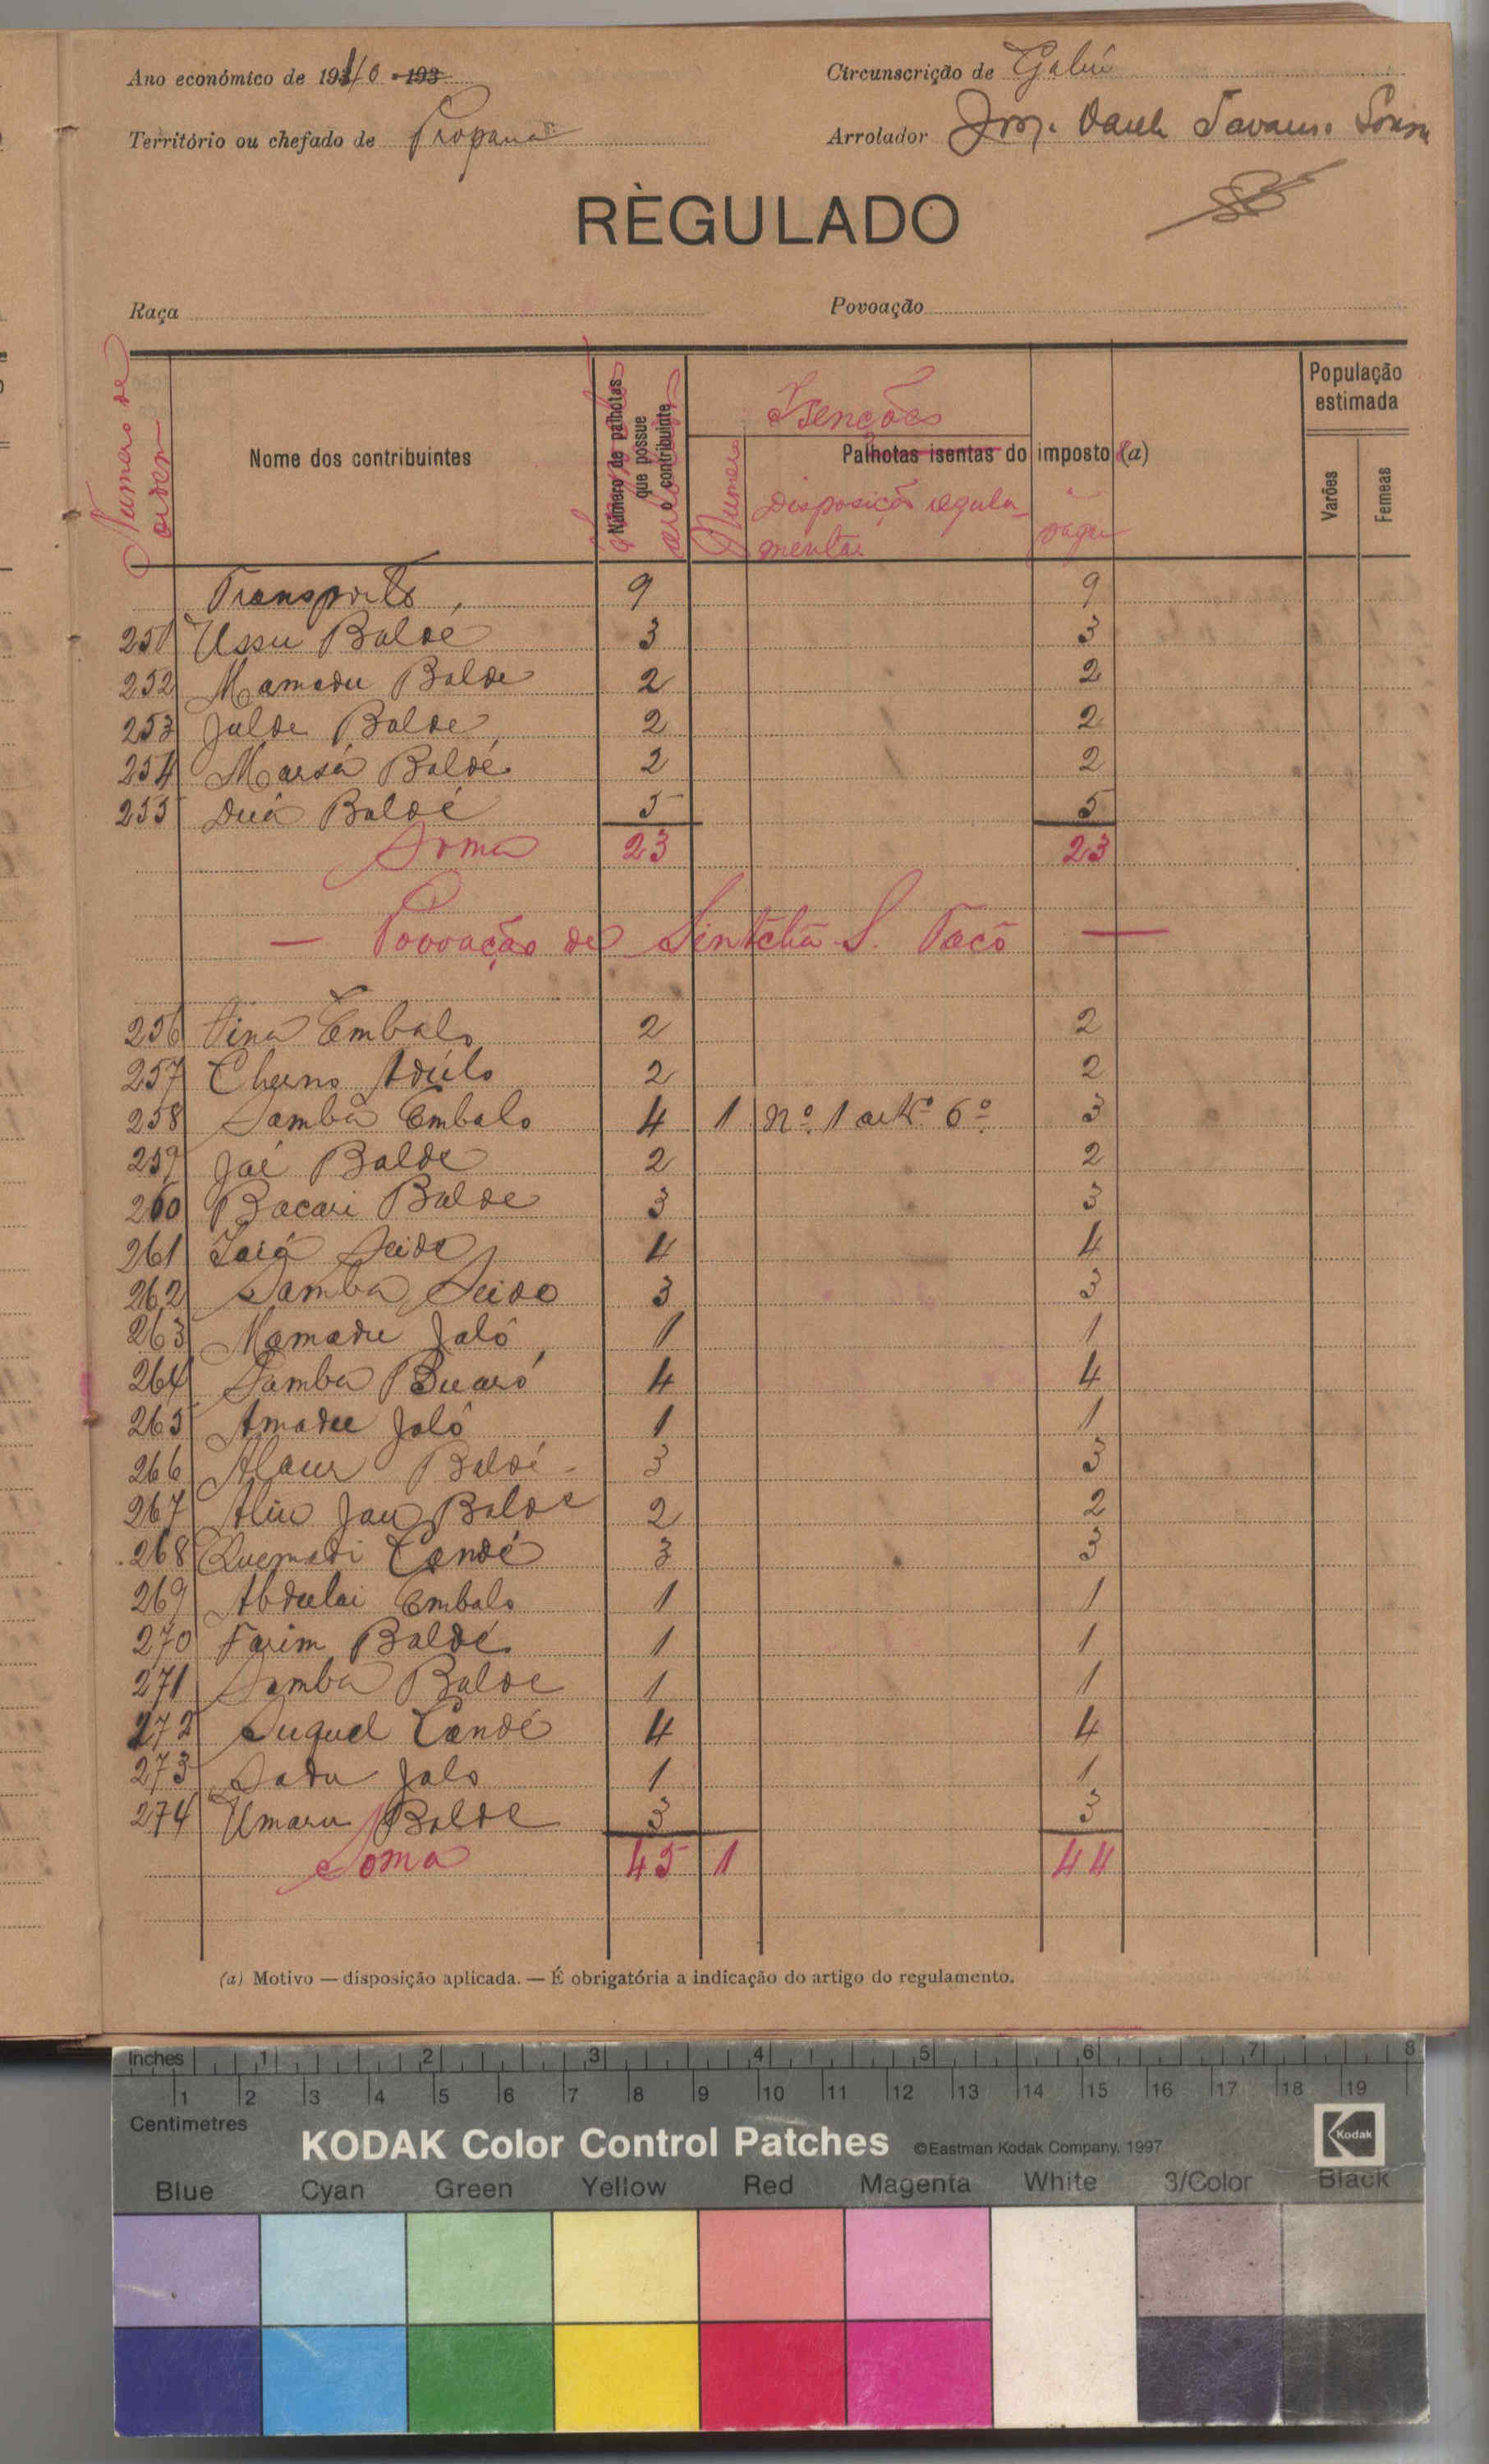 Ano económico de 19
Circunscrição de Gabú
Território ou chefado de Propana
Arrolador
RÈGULADO
Raça
Povoação
Numero de ordem
Nome dos contribuintes
Número de palhotas que possue o contribuinte
Isenções
Palhotas isentas do imposto (a)
Numero
Disposição regulamentar
a pagar
População estimada
Varões
Femeas
Transporte 9 9
251 Ussu Baldé 3 3
252 Mamadu Balde 2 2
253 Jalde Balde 2 2
254 Marsá Baldé 2 2
255 Duá Baldé 5 5
Soma 23 23
— Povoação de Sintchã S. Pacô —
256 Embalo 2 2
257 Cherno 2 2
258 Samba Embalo 4 1 nº 1 artº 6º 3
259 Jaé Balde 2 2
260 Bacari Balde 3 3
261 Iaiá Seide 4 4
262 Samba Seide 3 3
263 Mamadu Jaló 1 1
264 Samba Buaró 4 4
265 Amadu Jaló 1 1
266 Baldé 3 3
267 Aliu Jau Balde 2 2
268 Quemadi Candé 3 3
269 Abdulai Embalo 1 1
270 Farim Baldé 1 1
271 Samba Balde 1 1
272 Suquel Candé 4 4
273 Sadu Jalo 1 1
274 Umaru Balde 3 3
Soma 45 1 44
(a) Motivo — disposição aplicada. — É obrigatória a indicação do artigo do regulamento.
Inches 1 2 3 4 5 6 7 8
1 2 3 4 5 6 7 8 9 10 11 12 13 14 15 16 17 18 19
Centimetres
KODAK Color Control Patches ©Eastman Kodak Company, 1997 Kodak
Blue Cyan Green Yellow Red Magenta White 3/Color Black